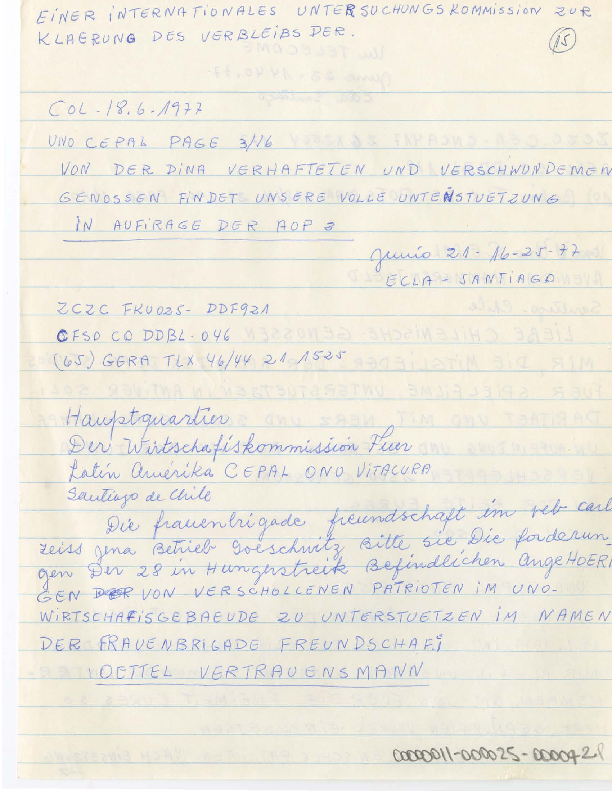 EINER INTERNATIONALES UNTERSUCHUNGSKOMMISSION ZUR
KLAERUNG DES VERBLEIBS DER.
15
COL-18.6-1977
UNO CEPAL PAGE 3/16
VON DER DINA VERHAFTETEN UND VERSCHWUNDEMEN
GENOSSEN FINDET UNSERE VOLLE UNTENSTUETZUNG
IN AUFIRAGE DER AOP 2
Junio 21-16-25-77
ECLA-SANTIAGO
ZCZC FKU025- DDF921
CFSO CO DDBL-046
(65) GERA TLX 46/44 21 1525
Hauptquartier
Der Wirtschafiskommission Fuer
Latín Amérika CEPAL ONO VITACURA
Santiago de Chile
Die frauenbrigade freundschaft im veb carl
zeiss jena Betrieb Goeschwitz Bitte sie Die forderun-
gen Der 28 in Hungerstreik Befindlichen AngeHOERI
GEN VON VERSCHOLLENEN PATRIOTEN IM UNO-
WIRTSCHAFISGEBAEUDE ZU UNTERSTUETZEN IM NAMEN
DER FRAUENBRIGADE FREUNDSCHAFi
OETTEL VERTRAUENSMANN
0000011-000025-000042